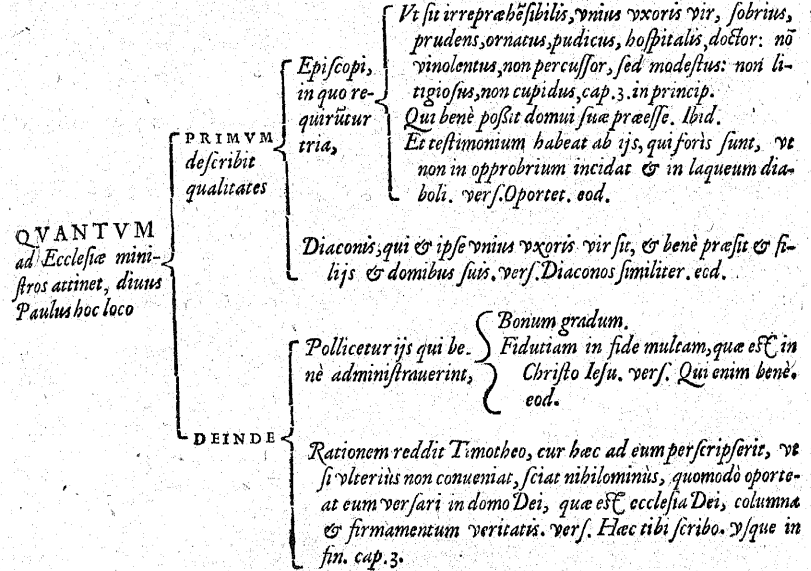 QVANTVM
ad Ecclesiæ mini-
stros attinet, diuus
Paulus hoc loco
PRIMVM
describit
qualitates
Episcopi,
in quo re-
quirūtur
tria,
Vt sit irrepræhēsibilis, vnius vxoris vir, sobrius,
prudens, ornatus, pudicus, hospitalis, doctor: nō
vinolentus, non percussor, sed modestus: non li-
tigiosus, non cupidus, cap. 3. in princip.
Qui benè possit domui suæ præesse. Ibid.
Et testimonium habeat ab ijs, qui foris sunt, vt
non in opprobrium incidat & in laqueum dia-
boli. vers. Oportet. eod.
Diaconis, qui & ipse vnius vxoris vir sit, & benè præsit & fi-
lijs & domibus suis. vers. Diaconos similiter. eod.
DEINDE
Pollicetur ijs qui be-
nè administrauerint,
Bonum gradum.
Fidutiam in fide multam, quæ est in
Christo Iesu. vers. Qui enim benè.
eod.
Rationem reddit Timotheo, cur hæc ad eum perscripserit, vt
si vlteriùs non conueniat, sciat nihilominùs, quomodò oporte-
at eum versari in domo Dei, quæ est ecclesia Dei, columna
& firmamentum veritatis. vers. Hæc tibi scribo. vsque in
fin. cap. 3.